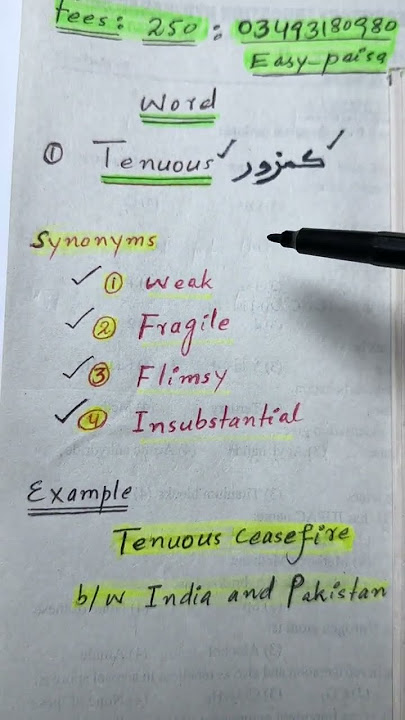 fees: 250 : 03493180980
Easy-paisa
Word
① Tenuous ✓ کمزور ✓
Synonyms
✓ ① Weak
✓ ② Fragile
✓ ③ Flimsy
✓ ④ Insubstantial
Example
Tenuous ceasefire
b/w India and Pakistan